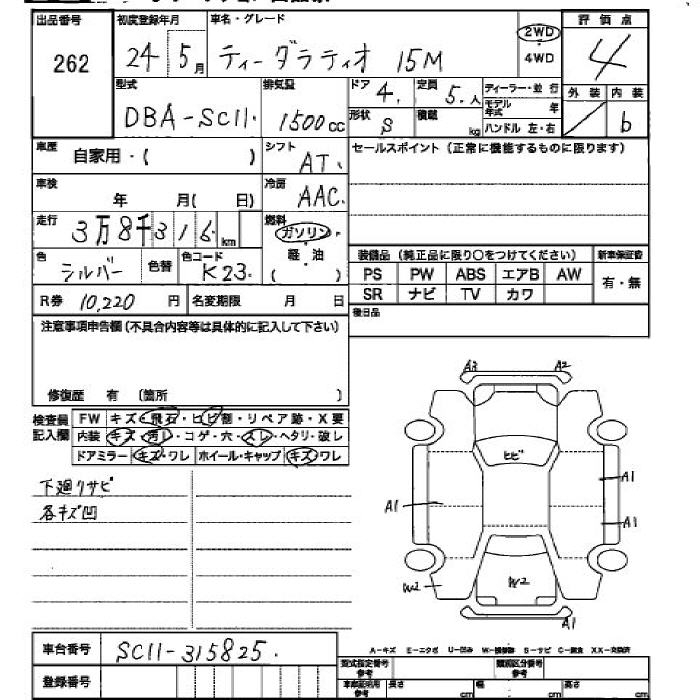 出品番号 262
初度登録年月 24 5月
車名・グレード ティーダラティオ 15M
2WD
4WD
評価点 4
外装 / 内装 b
型式 DBA-SC11.
排気量 1500cc
ドア 4. 定員 5.人
形状 S 積載 kg
ディーラー・並行
モデル年式 年
ハンドル 左・右
車歴 自家用・( )
シフト AT.
セールスポイント(正常に機能するものに限ります)
車検 年 月( 日)
冷房 AAC.
走行 3万8千316km
燃料 ガソリン・軽・油 ( )
色 シルバー 色替 色コード K23.
装備品(純正品に限り○をつけてください) 新車保証書
PS PW ABS エアB AW 有・無
SR ナビ TV カワ
R券 10,220円 名変期限 月 日
後日品
注意事項申告欄(不具合内容等は具体的に記入して下さい)
修復歴 有 〔箇所 〕
検査員記入欄
FW キズ・飛石・ヒビ割・リペア跡・X要
内装 キズ・汚レ・コゲ・穴・スレ・ヘタリ・破レ
ドアミラー キズ・ワレ ホイール・キャップ キズ・ワレ
下廻りサビ
各キズ凹
A3 A2
ヒビ
A1
A1 A1
W2 W2
A1
車台番号 SC11-315825.
登録番号
A-キズ E-エクボ U-凹み S-サビ
型式指定番号 参考 類別区分番号 参考
長さ cm 幅 cm 高さ cm